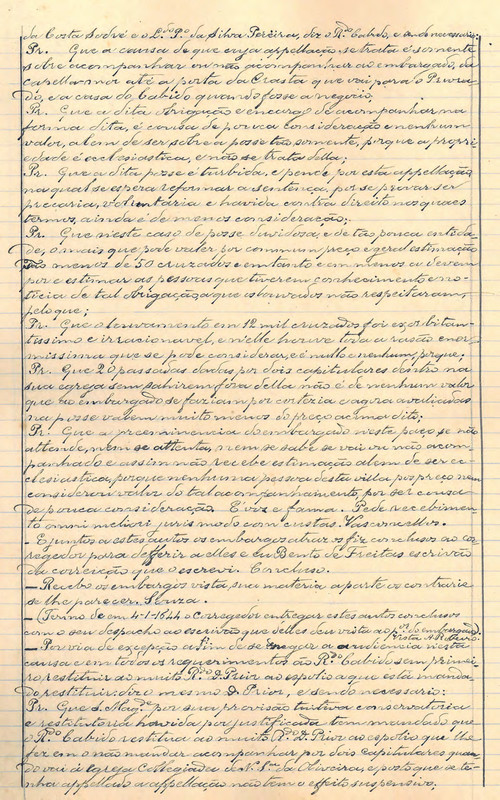 da Costa Sodré e o L.do P.o da Silva Pereira, diz o R.do Cabido, e sendo necessario:
Pr. Que a causa de que cuja appellação se trata é somente
sobre acompanhar ou não acompanhar ao embargado, da
capella-mor até a porta da Crasta que vai para o Priora-
do, e a casa do Cabido quando fosse a negocio;
Pr. Que a dita obrigação e encargo de acompanhar na
forma dita, é cousa de pouca consideração e nenhum
valor, alem de ser sobre a posse tão somente, porque a propri-
edade é ecclesiastica, e não se trata della;
Pr. Que a dita posse é turbida, e pende por esta appellação
na qual se espera reformar a sentença, por se provar ser
precaria, voluntaria e havida contra direito nos quaes
termos, ainda é de menos consideração;
Pr. Que n'este caso de posse duvidosa, e de tão pouca entida-
de, o mais que pode valer por commum preço e geral estimação
são menos de 50 cruzados e em tanto e em menos a devem
por e estimar as pessoas que tiverem conhecimento e no-
ticia de tal obrigação, a que os louvados não respeitaram,
pelo que;
Pr. Que o louvamento em 12 mil cruzados foi exorbitan-
tissimo e irracionavel, e n'elle houve toda a rasão enor-
missima que se pode considerar, e é nullo e nenhum, porque;
Pr. Que 20 passadas dadas, por dois capitulares dentro na
sua egreja sem sahirem fora della não é de nenhum valor
que ao embargado se faziam por cortezia e agora avaliadas
na posse valem muito menos do preço acima dito;
Pr. Que a preeminencia do embargado neste paço se não
attende, nem se attenta, nem se sabe se vai ou não acom-
panhado e assim não recebe estimação alem de ser ec-
clesiastica, porque nenhuma pessoa desta villa pos preço nem
considerou valor do tal acompanhamento, por ser cousa
de pouca consideração. E voz e fama. Pede recebimen-
to omni meliori juris modo com custas. Vasconcellos.
- E juntos a estes autos os embargos atraz os fiz conclusos ao cor-
regedor para defferir a elles e eu Bento de Freitas escrivão
da correição que o escrevi. Concluso.
— Recebo os embargos vista, sua materia a parte os contrarie
se lhe parecer. Souza.
— (Termo de em 4-1-1644 o corregedor entregar estes autos conclusos
com o seu despacho ao escrivão que delles deu vista ao p.or do embargado)
— Por via de excepção a fim de se negar a audiencia nesta
causa e em todos os requerimentos ao R.do Cabido sem primei-
ro restituir ao muito R.do D. Prior ao espolio a que está manda-
do restituir, diz o mesmo D. Prior, e sendo necessario:
Pr. Que s. Mag.e por sua provisão tuitiva conservatoria
e restitutoria havida por justificada tem mandado que
o R.do Cabido restitua ao muito R.do D. Prior ao espolio que lhe
fez em o não mandar acompanhar por dois capitulares quan-
do vai á Igreja Collegiada de N. Sr.a da Oliveira, e posto que te-
nha appellado a appellação não tem o effeito suspensivo;